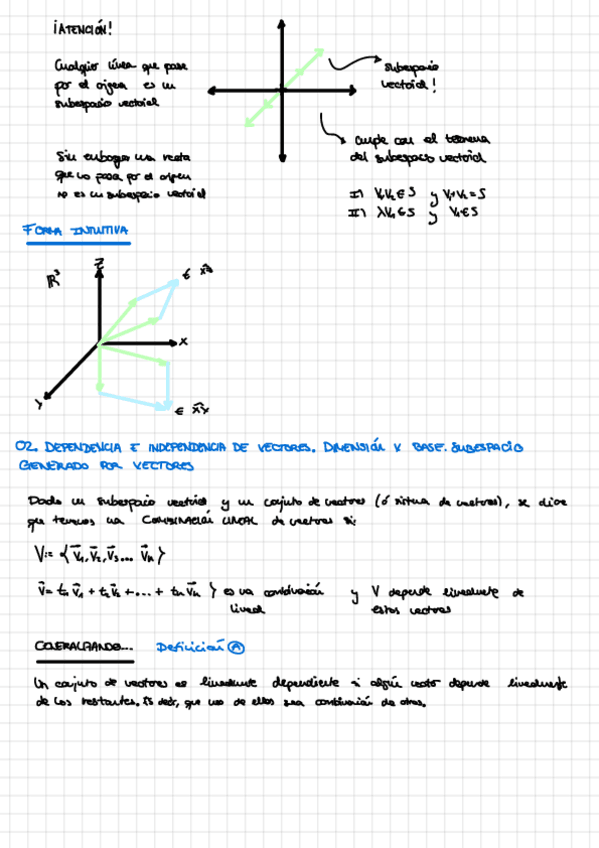 ¡ATENCIÓN!
Cualquier línea que pase
por el origen es un
subespacio vectorial
subespacio
vectorial!
cumple con el teorema
del subespacio vectorial
Sin embargo una recta
que no pasa por el origen
no es un subespacio vectorial
I) V₁V₂ ∈ S y V₁+V₂ = S
II) λV₁ ∈ S y V₁ ∈ S
FORMA INTUITIVA
ℝ³
Z
X
Y
∈ xz
∈ xy
02. DEPENDENCIA E INDEPENDENCIA DE VECTORES. DIMENSIÓN Y BASE. SUBESPACIO
GENERADO POR VECTORES
Dado un subespacio vectorial y un conjunto de vectores (ó sistema de vectores), se dice
que tenemos una COMBINACIÓN LINEAL de vectores si:
V:= {v⃗₁, v⃗₂, v⃗₃... v⃗ₙ}
v⃗ = t₁ v⃗₁ + t₂ v⃗₂ + ... + tₙ v⃗ₙ } es una combinación y V depende linealmente de
lineal estos vectores
GENERALIZANDO... Definición A
Un conjunto de vectores es linealmente dependiente si algún vector depende linealmente
de los restantes. Es decir, que uno de ellos sea combinación de otros.